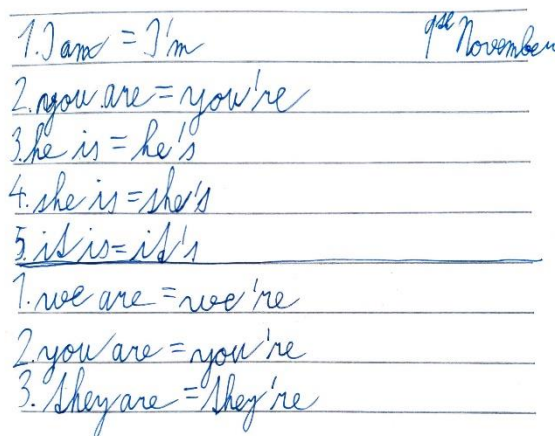 1. I am = I'm 9st November
2. you are = you're
3. he is = he's
4. she is = she's
5. it is = it's
1. we are = we're
2. you are = you're
3. they are = they're